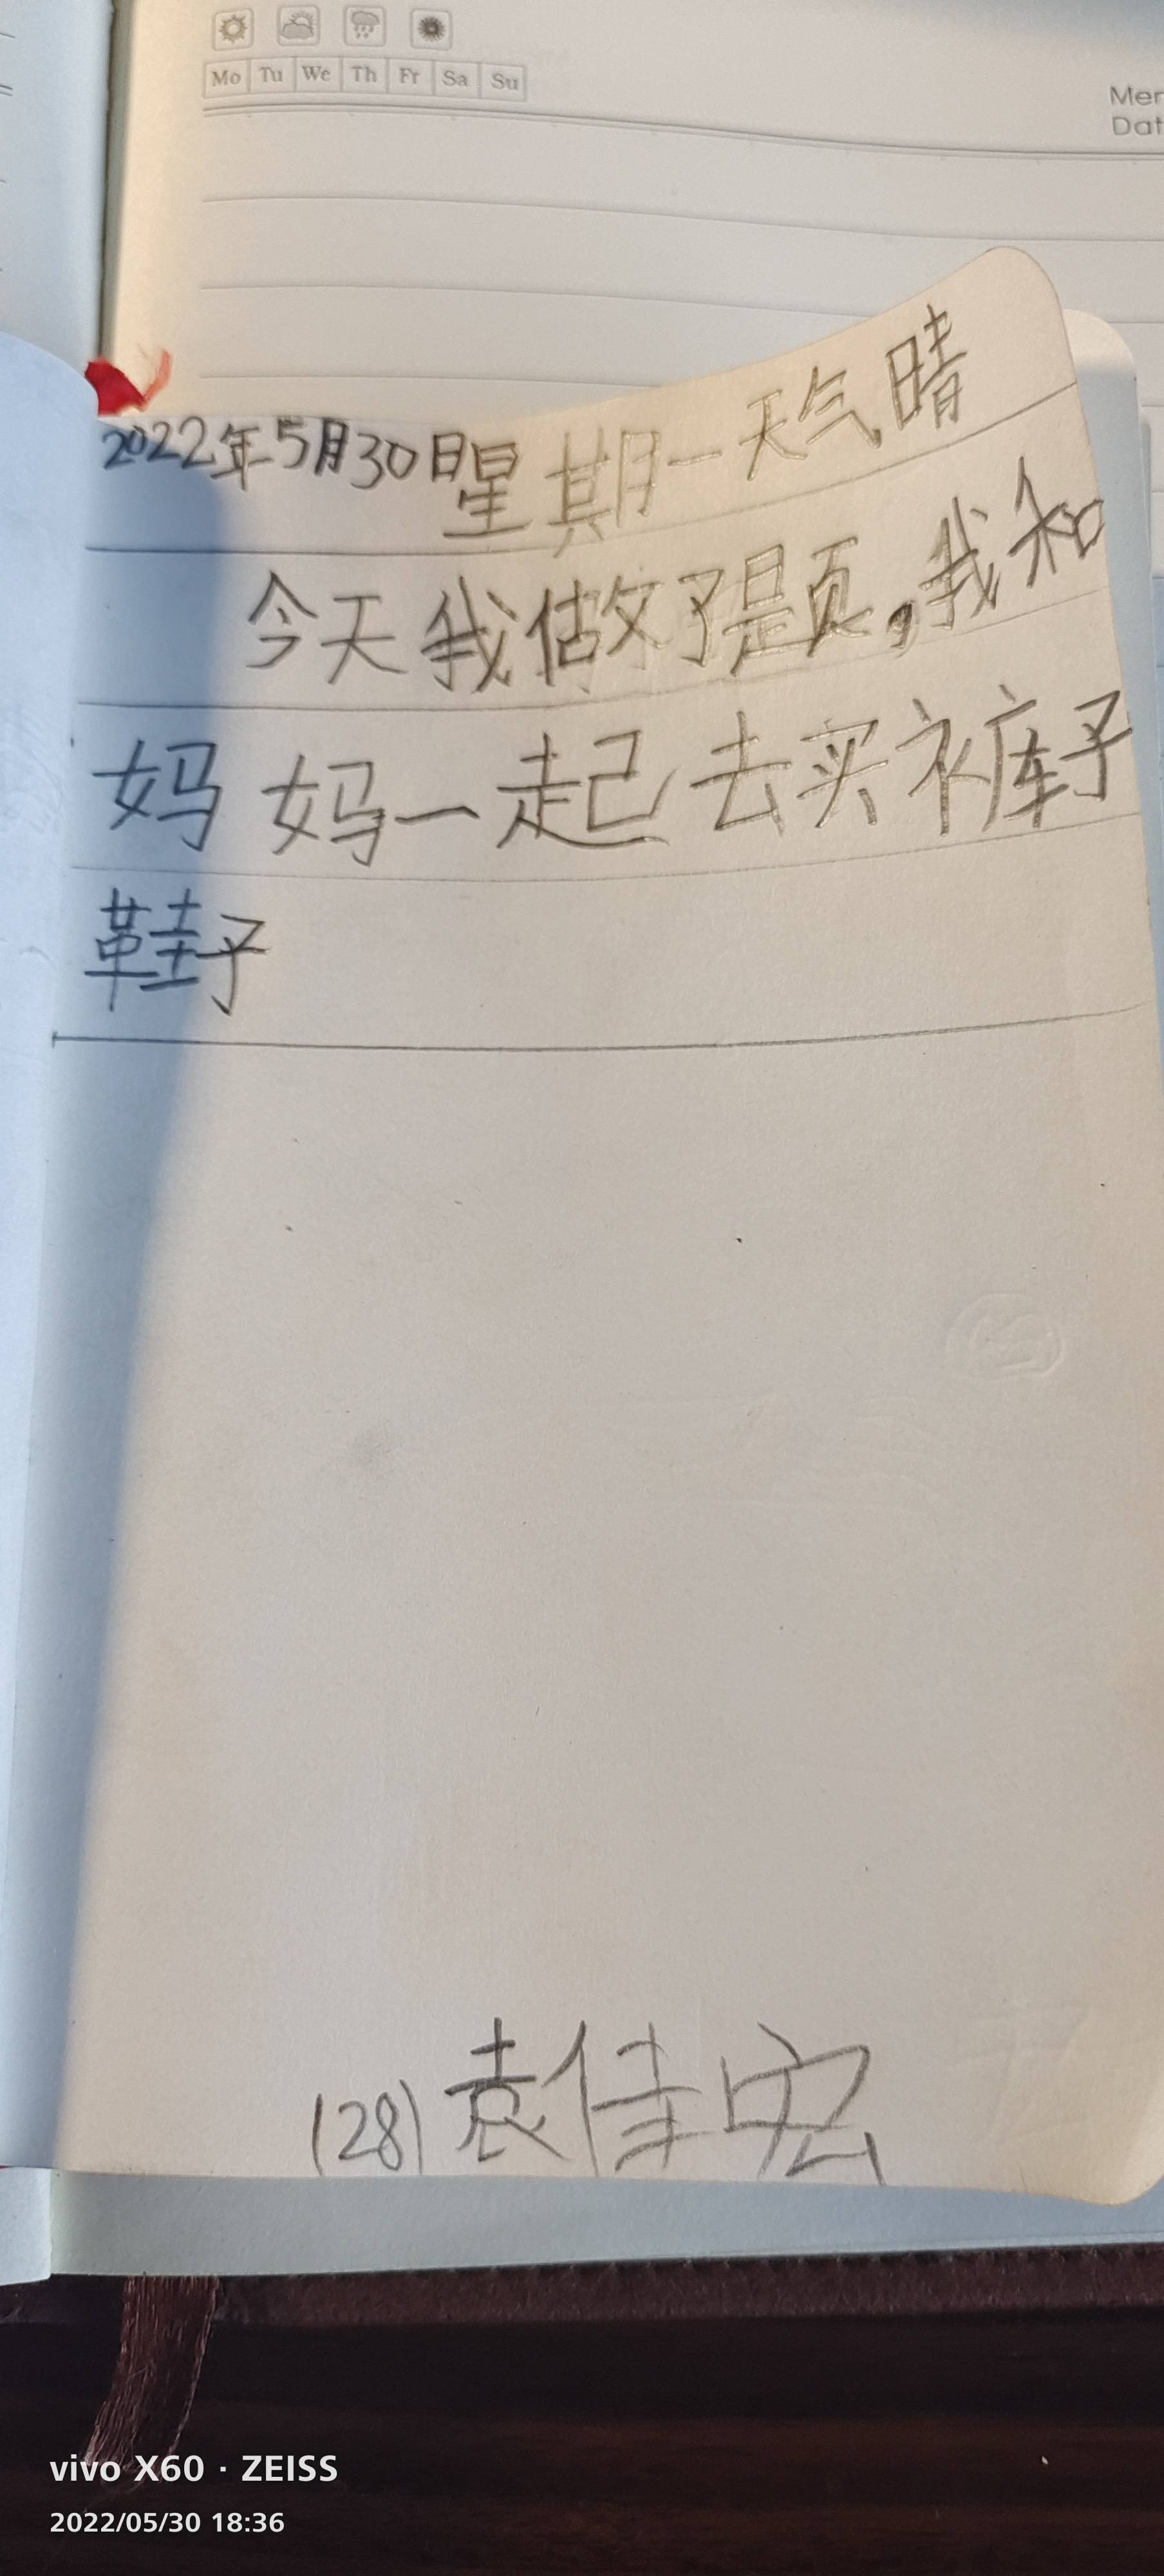 Mo Tu We Th Fr Sa Su
Mer
Dat
2022年5月30日星期一天气晴
今天我做了题,我和
妈妈一起去买裤子
鞋子
(28)袁佳宏
vivo X60 · ZEISS
2022/05/30 18:36